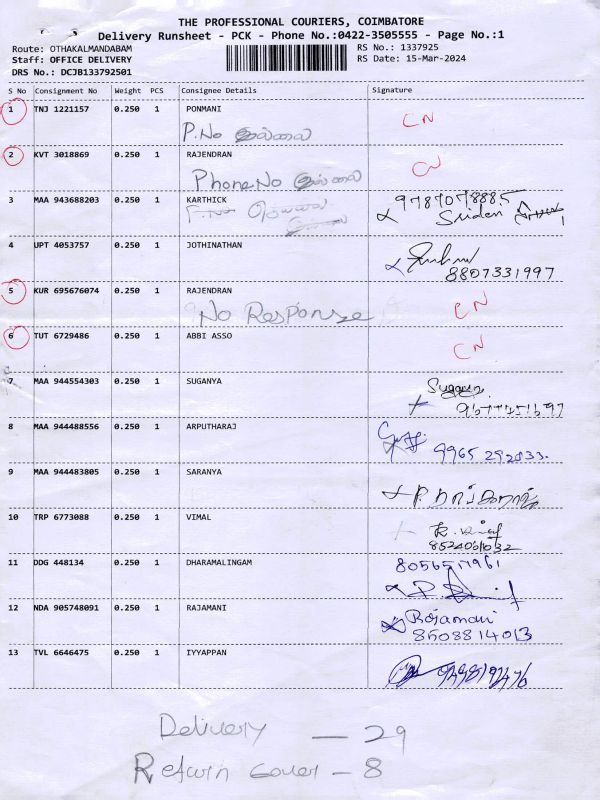 THE PROFESSIONAL COURIERS, COIMBATORE
Delivery Runsheet - PCK - Phone No.:0422-3505555 - Page No.:1
Route: OTHAKALMANDABAM
RS No.: 1337925
Staff: OFFICE DELIVERY
RS Date: 15-Mar-2024
DRS No.: DCJB133792501
S No Consignment No Weight PCS Consignee Details Signature
1 TNJ 1221157 0.250 1 PONMANI CN
P.No இல்லை
2 KVT 3018869 0.250 1 RAJENDRAN CN
Phone No இல்லை
3 MAA 943688203 0.250 1 KARTHICK
4 UPT 4053757 0.250 1 JOTHINATHAN
8807331997
5 KUR 695676074 0.250 1 RAJENDRAN CN
No Response
6 TUT 6729486 0.250 1 ABBI ASSO CN
7 MAA 944554303 0.250 1 SUGANYA Suganya
8 MAA 944488556 0.250 1 ARPUTHARAJ
9965 292033.
9 MAA 944483805 0.250 1 SARANYA
10 TRP 6773088 0.250 1 VIMAL
11 DDG 448134 0.250 1 DHARAMALINGAM
12 NDA 905748091 0.250 1 RAJAMANI Rajamani
8508814013
13 TVL 6646475 0.250 1 IYYAPPAN
Delivery — 29
Return Cover - 8